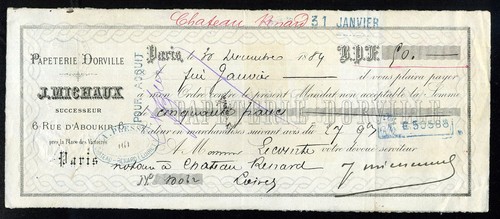 Chateau Renard 31 JANVIER
PAPETERIE DORVILLE
Paris, le 30 Decembre 1889 B.P.F. 50.
fin Janvier il vous plaira payer
J. MICHAUX
SUCCESSEUR
POUR ACQUIT
Ordre contre le présent Mandat non acceptable la Somme
PAPETERIE DORVILLE
6 RUE D'ABOUKIR, 6
cinquante francs
près la Place des Victoires
Paris
en marchandises suivant avis du
A Monsieur Lecointe votre dévoué serviteur
notaire à Chateau Renard
Loiret